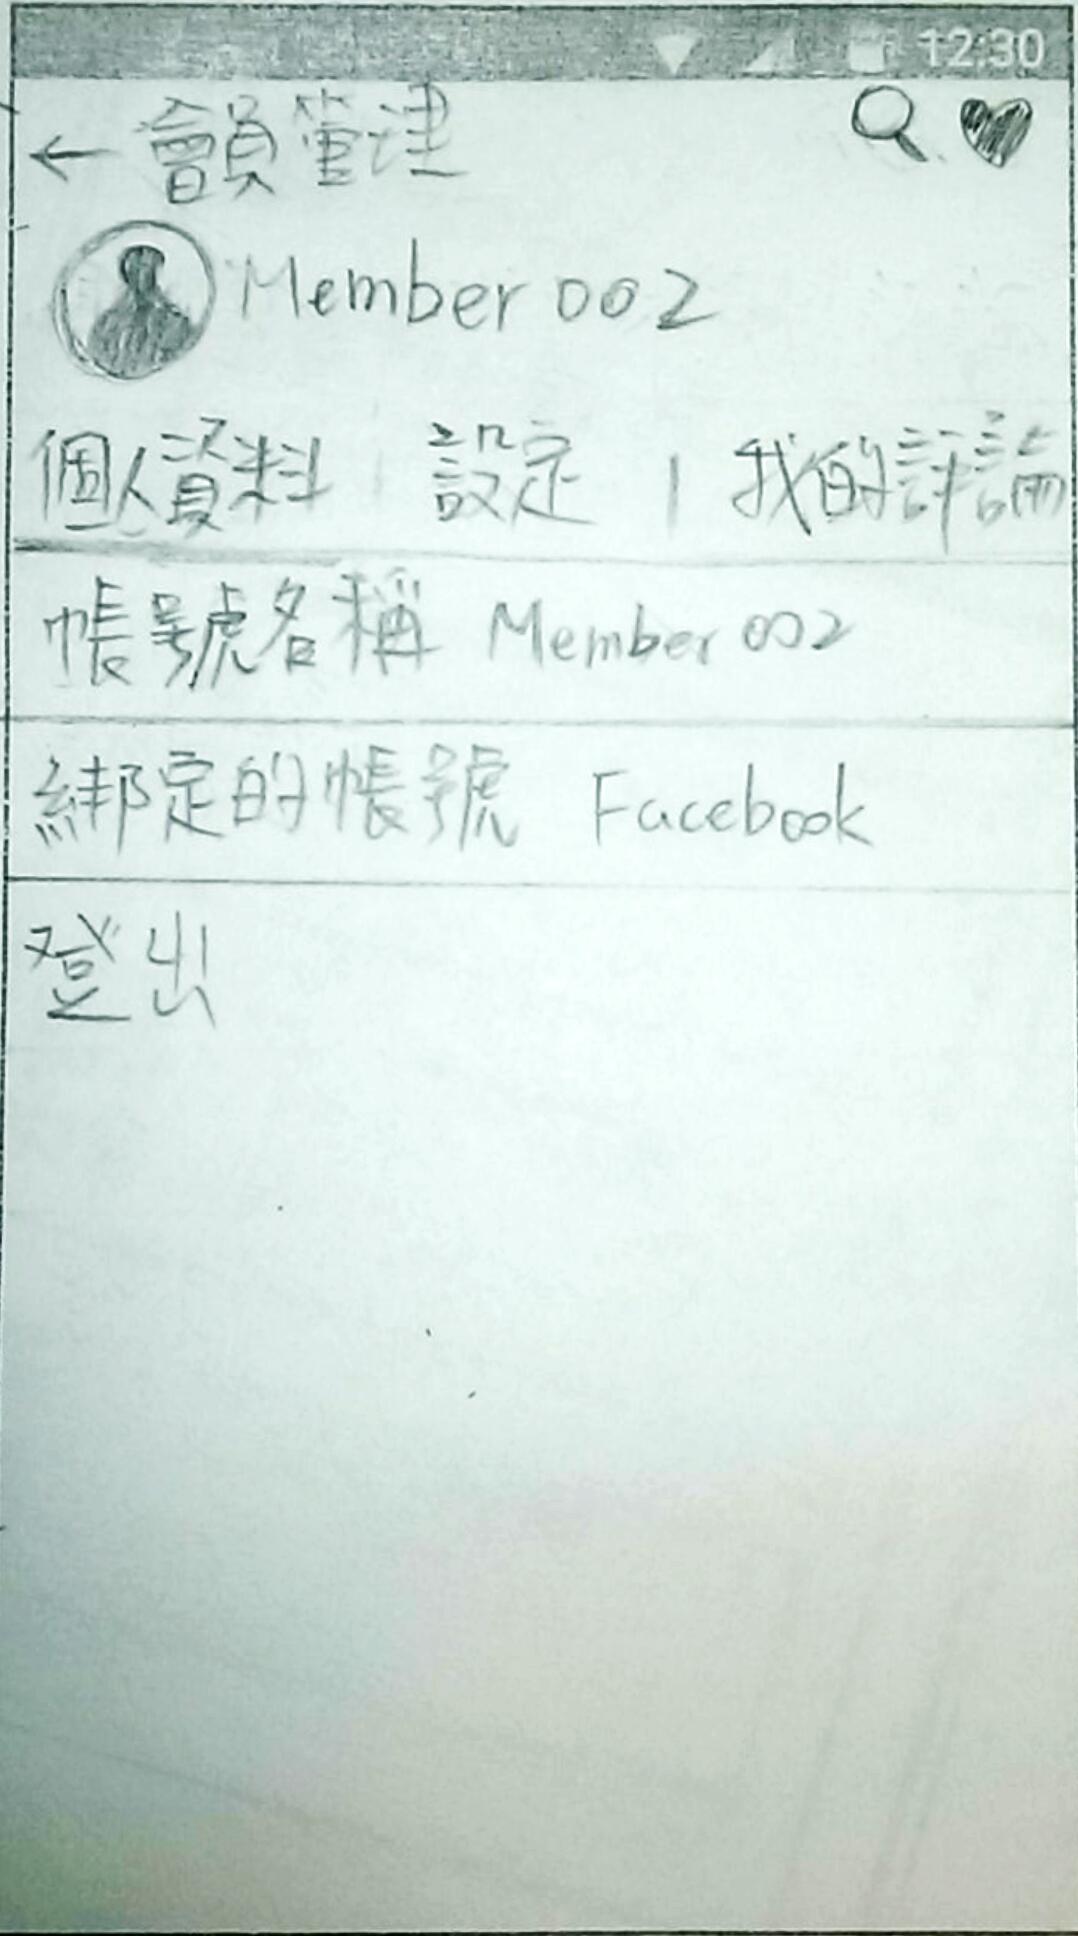 12:30
← 會員管理
Member 002
個人資料 | 設定 | 我的評論
帳號名稱 Member 002
綁定的帳號 Facebook
登出